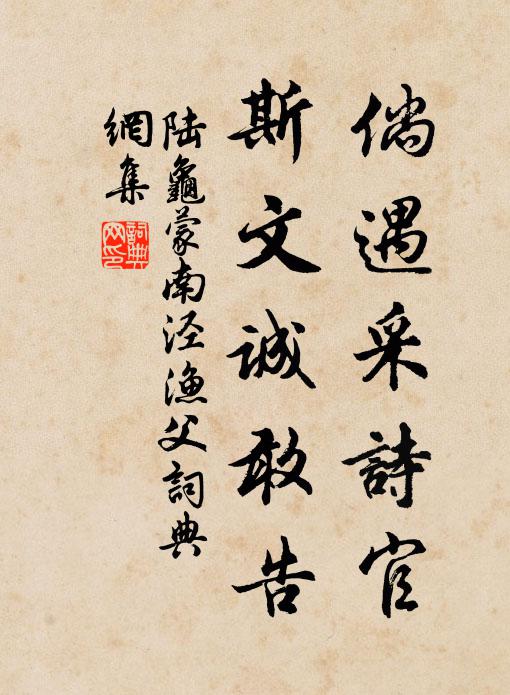 倘遇采詩官
斯文誠敢告
陆龜蒙南泾渔父詞典
網集
詞典
网印